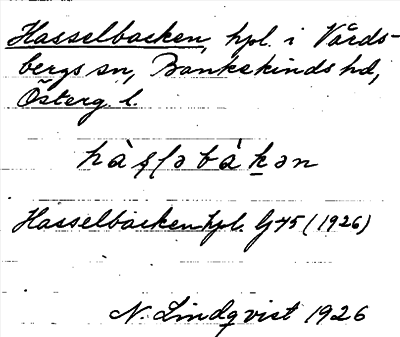 Hasselbacken, hpl. i Vårds-
bergs sn, Bankekinds hd,
Österg. l.
hàṣḷəbák̲ən
Hasselbacken hpl. G 45 (1926)
N. Lindqvist 1926